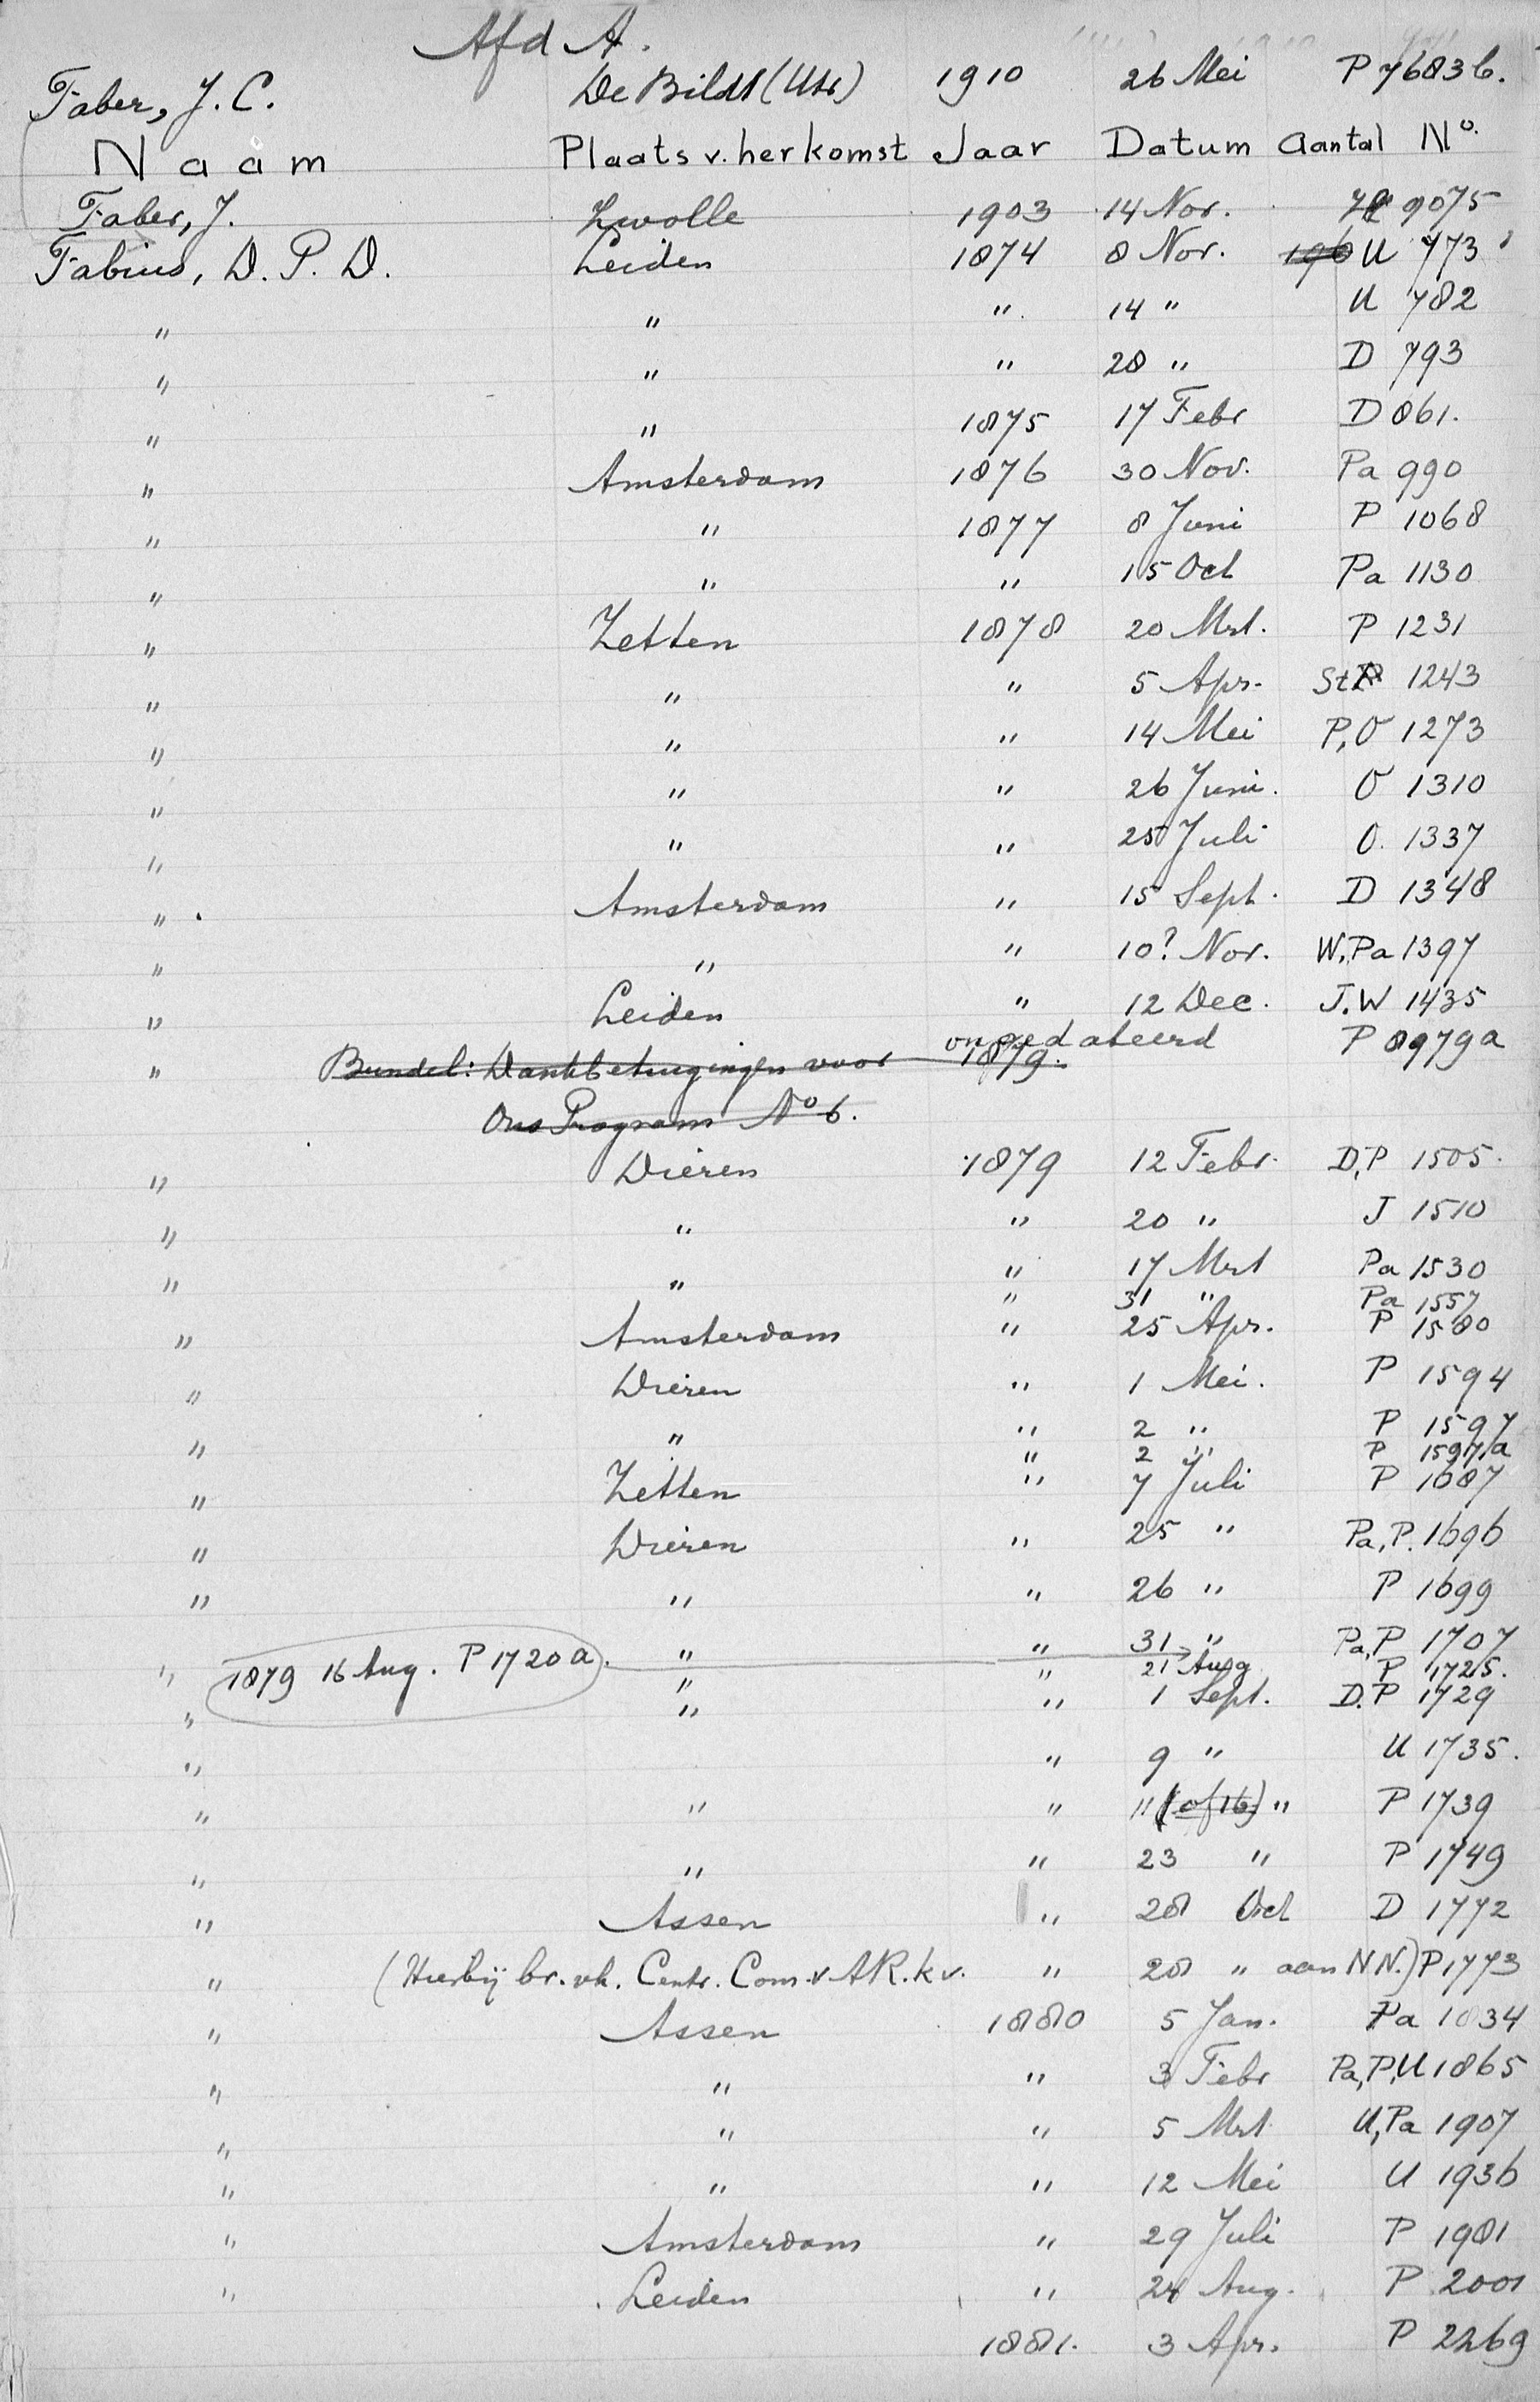 Afd A.
Faber, J. C. De Bildt (Utr) 1910 26 Mei P 7683b.
Naam Plaats v. herkomst Jaar Datum Aantal No.
Faber, J. Zwolle 1903 14 Nov. 9075
Fabius, D. P. D. Leiden 1874 8 Nov. 196 U 773
" " " 14 " U 782
" " " 28 " D 793
" " 1875 17 Febr D 861.
" Amsterdam 1876 30 Nov. Pa 990
" " 1877 8 Juni P 1068
" " " 15 Oct Pa 1130
" Zetten 1878 20 Mrt. P 1231
" " " 5 Apr. St P 1243
" " " 14 Mei P, O 1273
" " " 26 Juni. O 1310
" " " 25 Juli O. 1337
" Amsterdam " 15 Sept. D 1348
" " " 10? Nov. W, Pa 1397
" Leiden " 12 Dec. J. W 1435
ongedateerd P 8979a
" Bundel: Dankbetuigingen voor 1879.
Ons Program No 6.
" Dieren 1879 12 Febr. D, P 1505.
" " " 20 " J 1510
" " " 17 Mrt Pa 1530
" 31 " Pa 1557
" Amsterdam " 25 Apr. P 1580
" Dieren " 1 Mei. P 1594
" " " 2 " P 1597
" 2 " P 1597a
" Zetten " 7 Juli P 1687
" Dieren " 25 " Pa, P. 1696
" " " 26 " P 1699
" " 31 " Pa, P 1707
" 1879 16 Aug. P 1720a. " " 21 Aug P 1725.
" " " 1 Sept. D. P 1729
" " 9 " U 1735.
" " " 11 (of 16) " P 1739
" " " 23 " P 1749
" Assen " 28 Oct D 1772
" (Hierbij br. vh. Centr. Com. v AR. kv. " 28 " aan N N.) P 1773
" Assen 1880 5 Jan. Pa 1834
" " " 3 Febr Pa, P, U 1865
" " " 5 Mrt U, Pa 1907
" " " 12 Mei U 1936
" Amsterdam " 29 Juli P 1981
" Leiden " 24 Aug. P 2001
1881. 3 Apr. P 2269